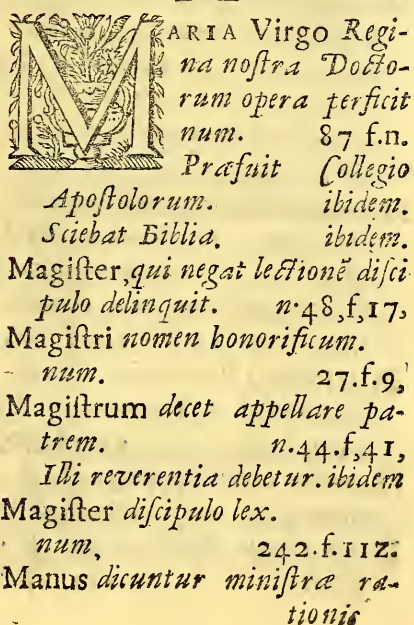 MARIA Virgo Regi-
na noſtra Docto-
rum opera perficit
num. 87 f.n.
Præfuit Collegio
Apoſtolorum. ibidem.
Sciebat Biblia. ibidem.
Magiſter, qui negat lectionē diſci
pulo delinquit. n.48,f,17,
Magiſtri nomen honorificum.
num. 27.f.9,
Magiſtrum decet appellare pa-
trem. n.44.f,41,
Illi reverentia debetur. ibidem
Magiſter diſcipulo lex.
num, 242.f.112.
Manus dicuntur miniſtræ ra-
tionis